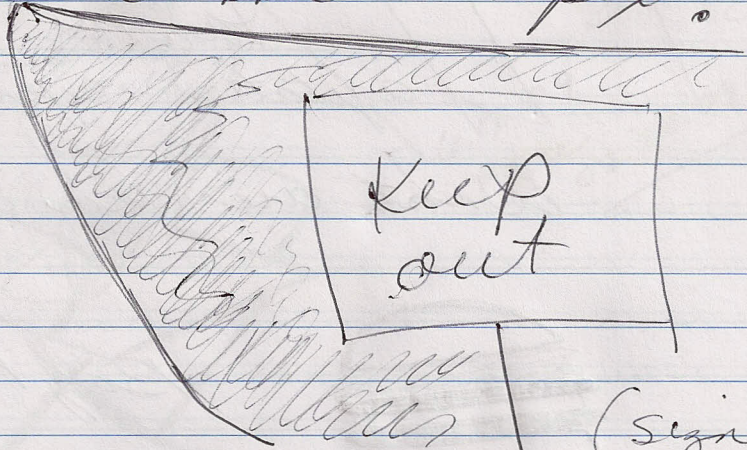 Keep
out
(sign